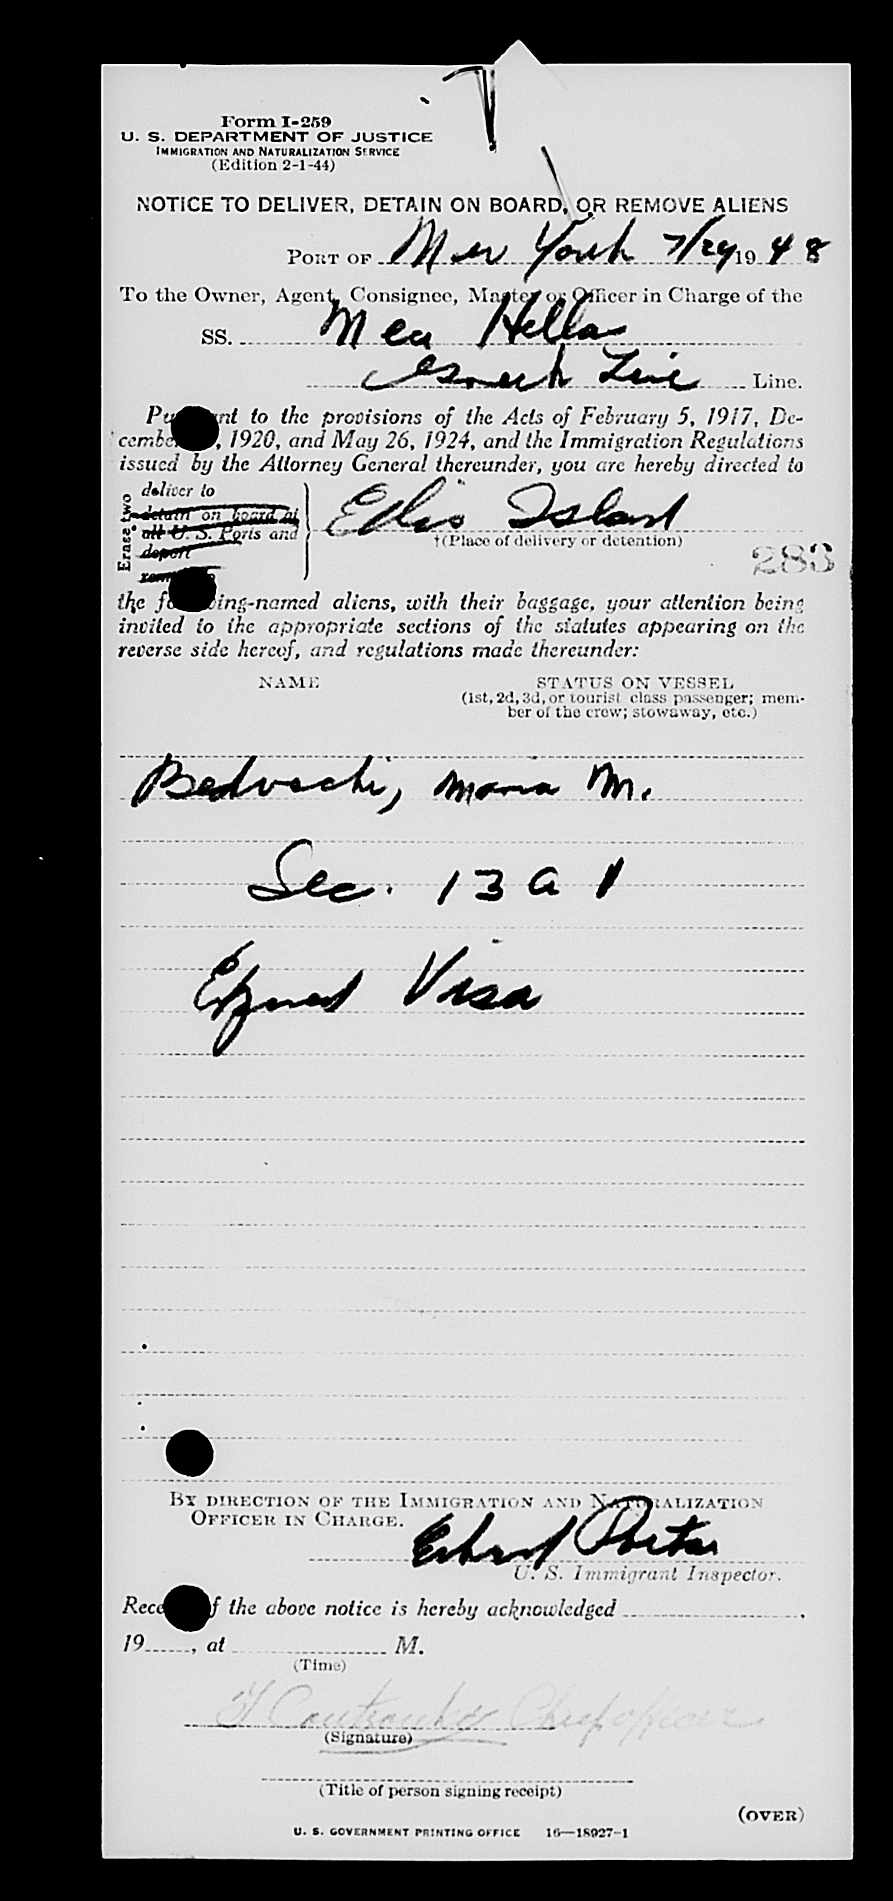 Form I-259
U. S. DEPARTMENT OF JUSTICE
IMMIGRATION AND NATURALIZATION SERVICE
(Edition 2-1-44)
NOTICE TO DELIVER, DETAIN ON BOARD, OR REMOVE ALIENS
PORT OF New York 7/29 19 48
To the Owner, Agent, Consignee, Master or Officer in Charge of the
SS. Nea Hellas
Line Line.
nt to the provisions of the Acts of February 5, 1917, De-
cembe , 1920, and May 26, 1924, and the Immigration Regulations
issued by the Attorney General thereunder, you are hereby directed to
Erase two
deliver to
detain on board at
all U. S. Ports and
deport
Ellis Island
†(Place of delivery or detention)
283
the f ing-named aliens, with their baggage, your attention being
invited to the appropriate sections of the statutes appearing on the
reverse side hereof, and regulations made thereunder:
NAME
STATUS ON VESSEL
(1st, 2d, 3d, or tourist class passenger; mem-
ber of the crew; stowaway, etc.)
Maria M.
Sec. 13 a 1
Visa
BY DIRECTION OF THE IMMIGRATION AND NATURALIZATION
OFFICER IN CHARGE.
U. S. Immigrant Inspector.
Rece f the above notice is hereby acknowledged
19 , at M.
(Time)
Chief officer
(Signature)
(Title of person signing receipt)
(OVER)
U. S. GOVERNMENT PRINTING OFFICE 16—18927-1